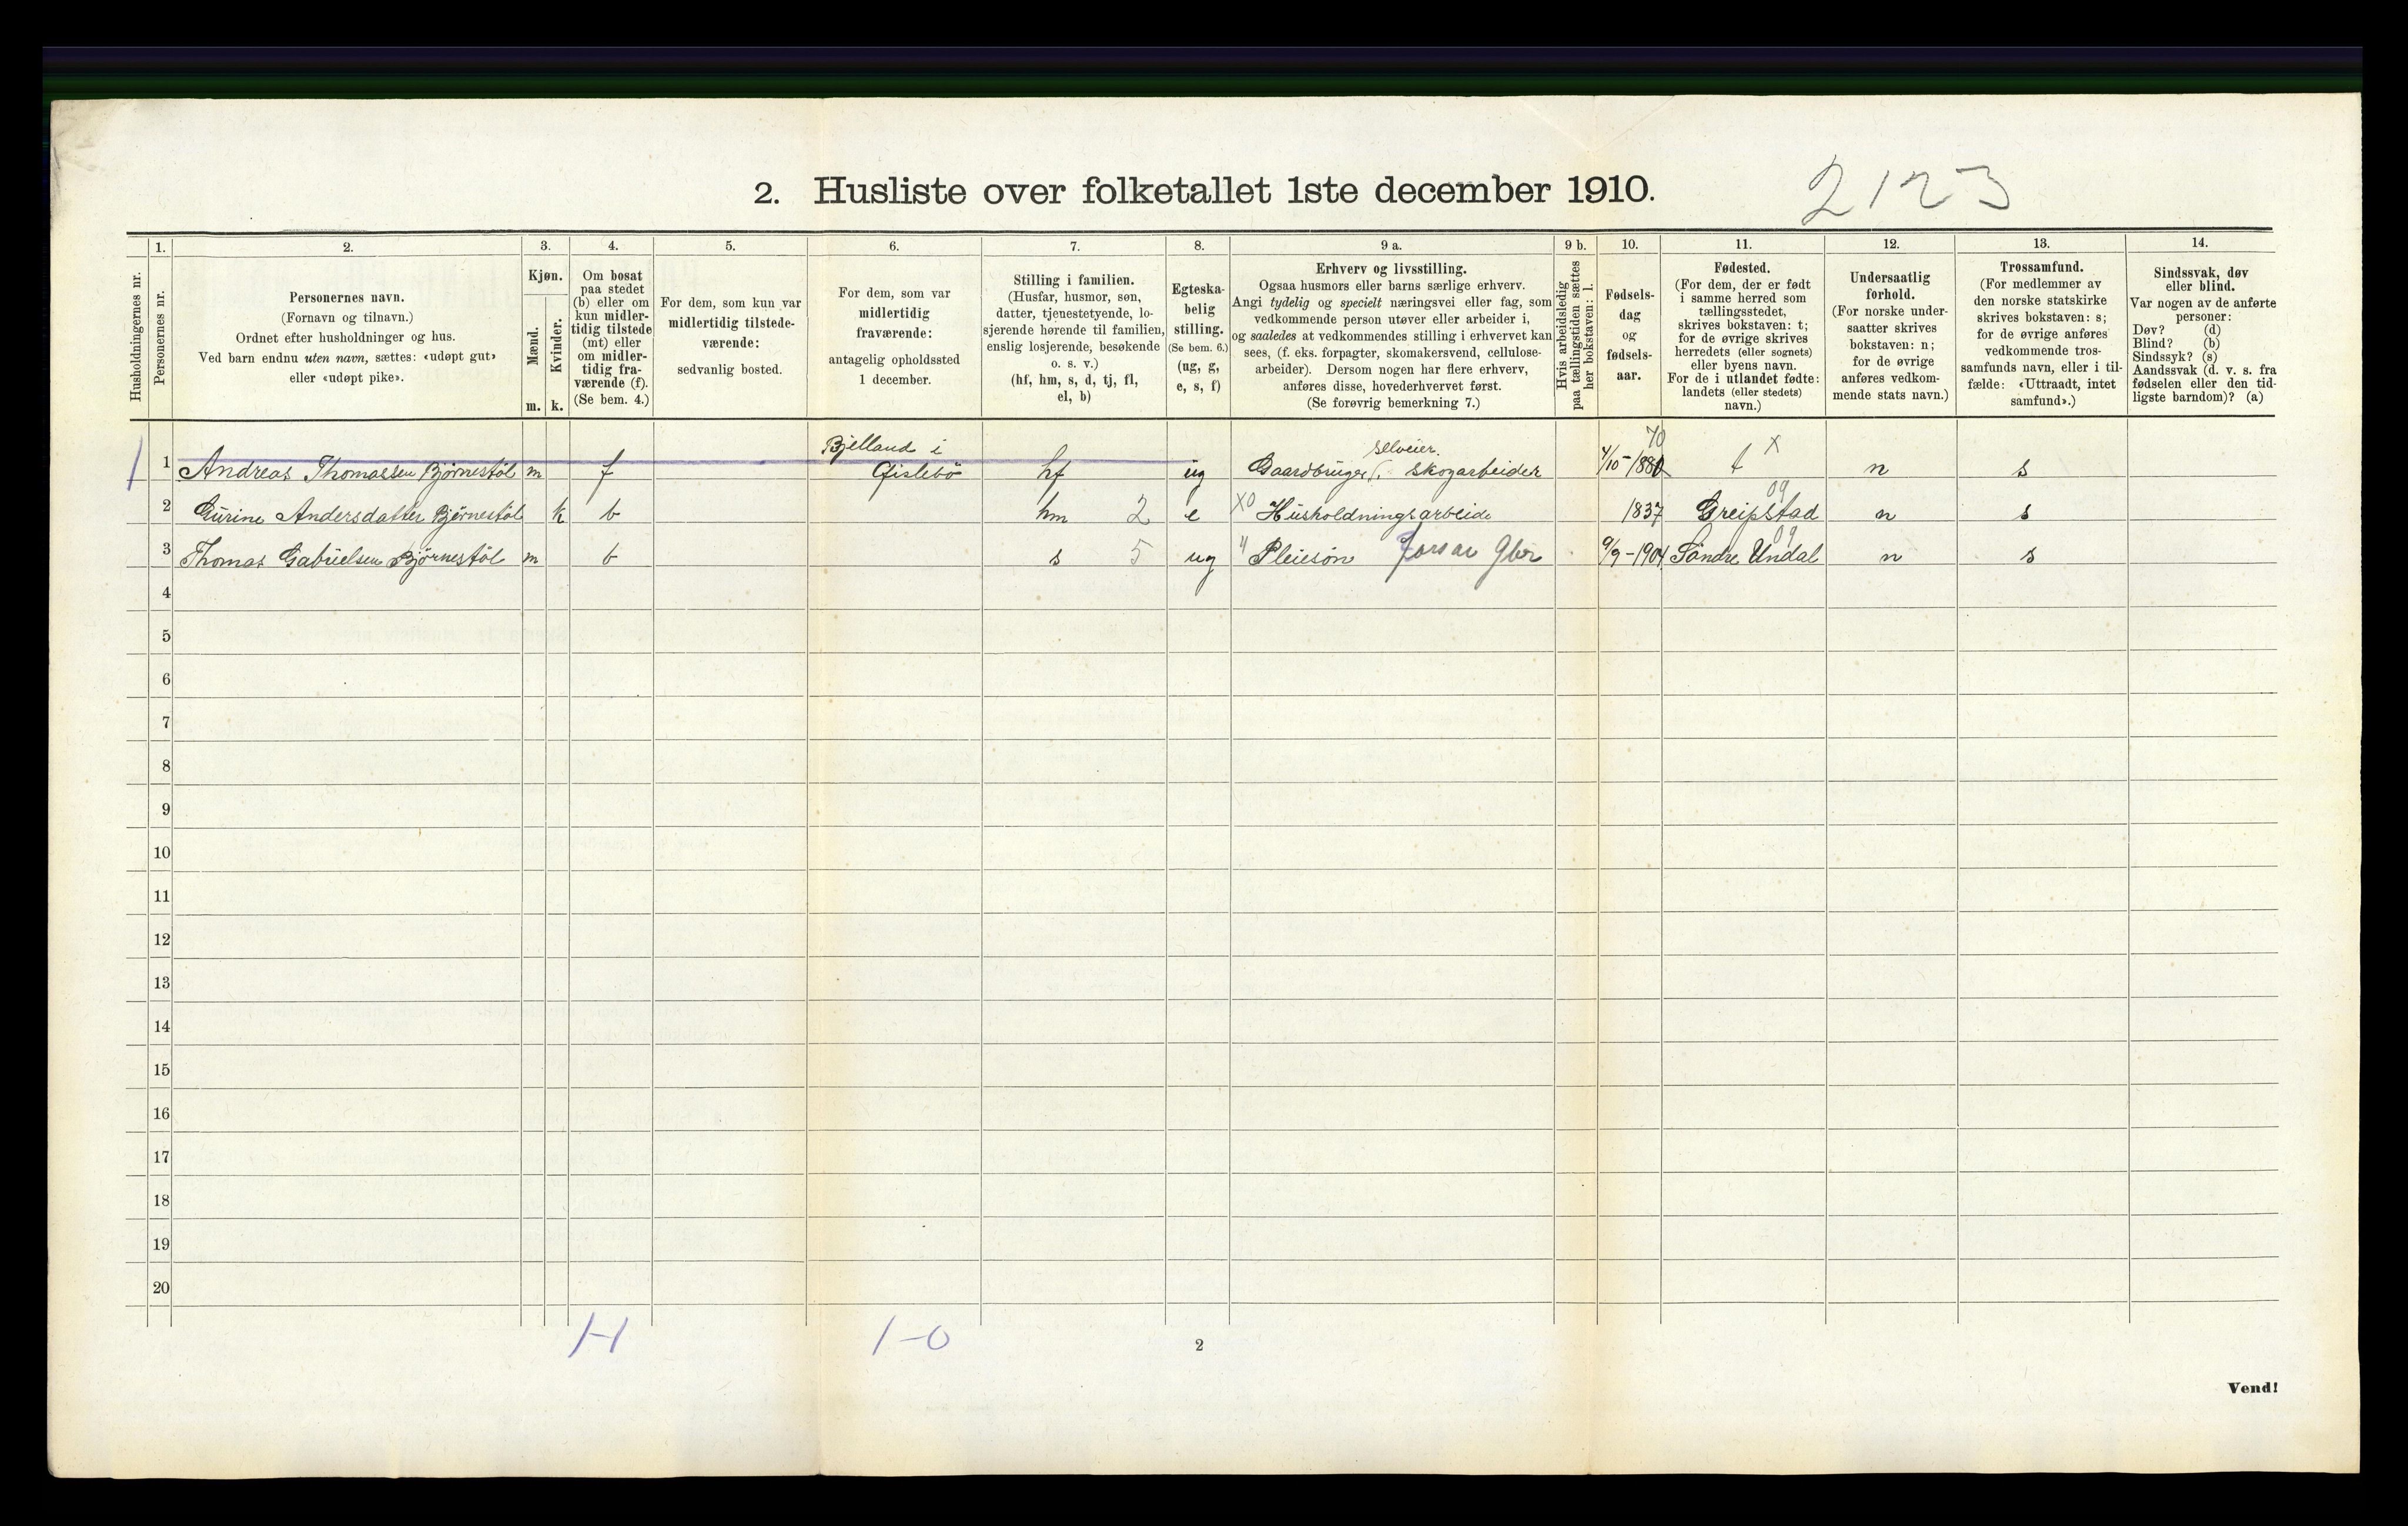 2. Husliste over folketallet 1ste december 1910. 2123
Husholdningernes nr.
1. Personernes nr.
2. Personernes navn. (Fornavn og tilnavn.) Ordnet efter husholdninger og hus. Ved barn endnu uten navn, sættes: «udøpt gut» eller «udøpt pike».
3. Kjøn. Mænd. m. Kvinder. k.
4. Om bosat paa stedet (b) eller om kun midlertidig tilstede (mt) eller om midlertidig fraværende (f). (Se bem. 4.)
5. For dem, som kun var midlertidig tilstedeværende: sedvanlig bosted.
6. For dem, som var midlertidig fraværende: antagelig opholdssted 1 december.
7. Stilling i familien. (Husfar, husmor, søn, datter, tjenestetyende, losjerende hørende til familien, enslig losjerende, besøkende o. s. v.) (hf, hm, s, d, tj, fl, el, b)
8. Egteskabelig stilling. (Se bem. 6.) (ug, g, e, s, f)
9 a. Erhverv og livsstilling. Ogsaa husmors eller barns særlige erhverv. Angi tydelig og specielt næringsvei eller fag, som vedkommende person utøver eller arbeider i, og saaledes at vedkommendes stilling i erhvervet kan sees, (f. eks. forpagter, skomakersvend, cellulosearbeider). Dersom nogen har flere erhverv, anføres disse, hovederhvervet først. (Se forøvrig bemerkning 7.)
9 b. Hvis arbeidsledig paa tællingstiden sættes her bokstaven: l.
10. Fødselsdag og fødselsaar.
11. Fødested. (For dem, der er født i samme herred som tællingsstedet, skrives bokstaven: t; for de øvrige skrives herredets (eller sognets) eller byens navn. For de i utlandet fødte: landets (eller stedets) navn.)
12. Undersaatlig forhold. (For norske undersaatter skrives bokstaven: n; for de øvrige anføres vedkommende stats navn.)
13. Trossamfund. (For medlemmer av den norske statskirke skrives bokstaven: s; for de øvrige anføres vedkommende trossamfunds navn, eller i tilfælde: «Uttraadt, intet samfund».)
14. Sindssvak, døv eller blind. Var nogen av de anførte personer: Døv? (d) Blind? (b) Sindssyk? (s) Aandssvak (d. v. s. fra fødselen eller den tidligste barndom)? (a)
Bjelland i selveier. 70
1 1 Andreas Thomassen Bjørnestøl m f Gislebö hf ug Gaardbruger, skogarbeider 4/10-1880 t X n s
2 Gurine Andersdatter Bjørnestøl k b hm 2 e X0 Husholdningsarbeide 1837 Greipstad 09 n s
3 Thomas Gabrielsen Bjørnestöl m b s 5 ug " Pleiesön Forsør Gbr 9/9-1904 Söndre Undal 09 n s
4
5
6
7
8
9
10
11
12
13
14
15
16
17
18
19
20
1-1 1-0
2
Vend!